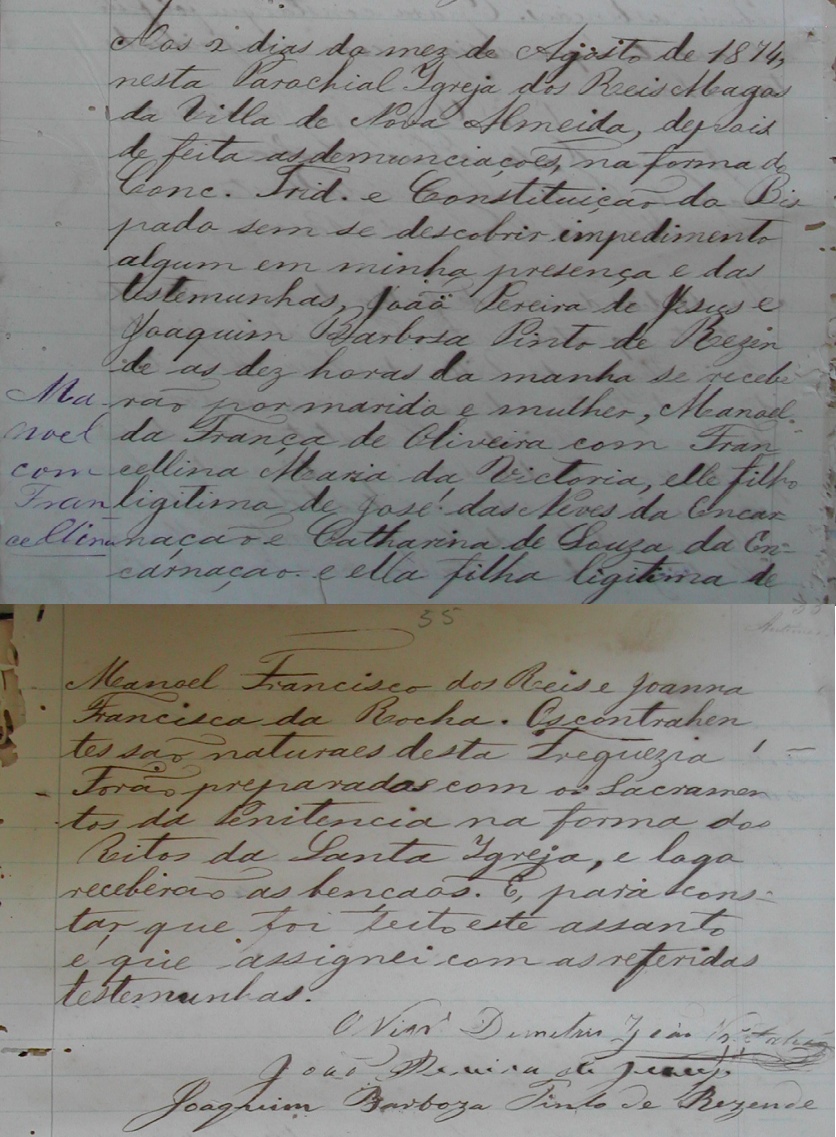 Aos 2 dias do mez de Agosto de 1874,
nesta Parochial Igreja dos Reis Magos
da Villa de Nova Almeida, depois
de feita as denunciaçoes, na forma do
Conc. Trid. e Constituição do Bis
pado sem se descobrir impedimento
algum em minha presença e das
testemunhas, João Pereira de Jesus e
Joaquim Barbosa Pinto de Rezen
de as dez horas da manha se recebe
rão por marido e mulher, Manoel
da França de Oliveira com Fran
cellina Maria da Victoria, elle filho
ligitimo de José das Neves da Encar
nação e Catharina de Souza da En-
carnaçao. e ella filha ligitima de
Ma-
noel
com
Fran
cellina
55
Manoel Francisco dos Reis e Joanna
Francisca da Rocha. Os contrahen
tes são naturaes desta Freguezia
Forão preparados com os Sacramen
tos da Penitencia na forma dos
Ritos da Santa Igreja, e logo
receberão as bencaos. E, para cons-
tar que foi feito este assanto
é que assignei com as referidas
testemunhas.
O Vigr.º João
João Pereira de Jesus
Joaquim Barboza Pinto de Rezende